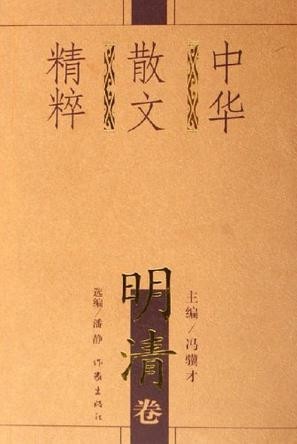 中华
散文
精粹
明清
卷
主编/冯骥才
选编/潘静
作家出版社